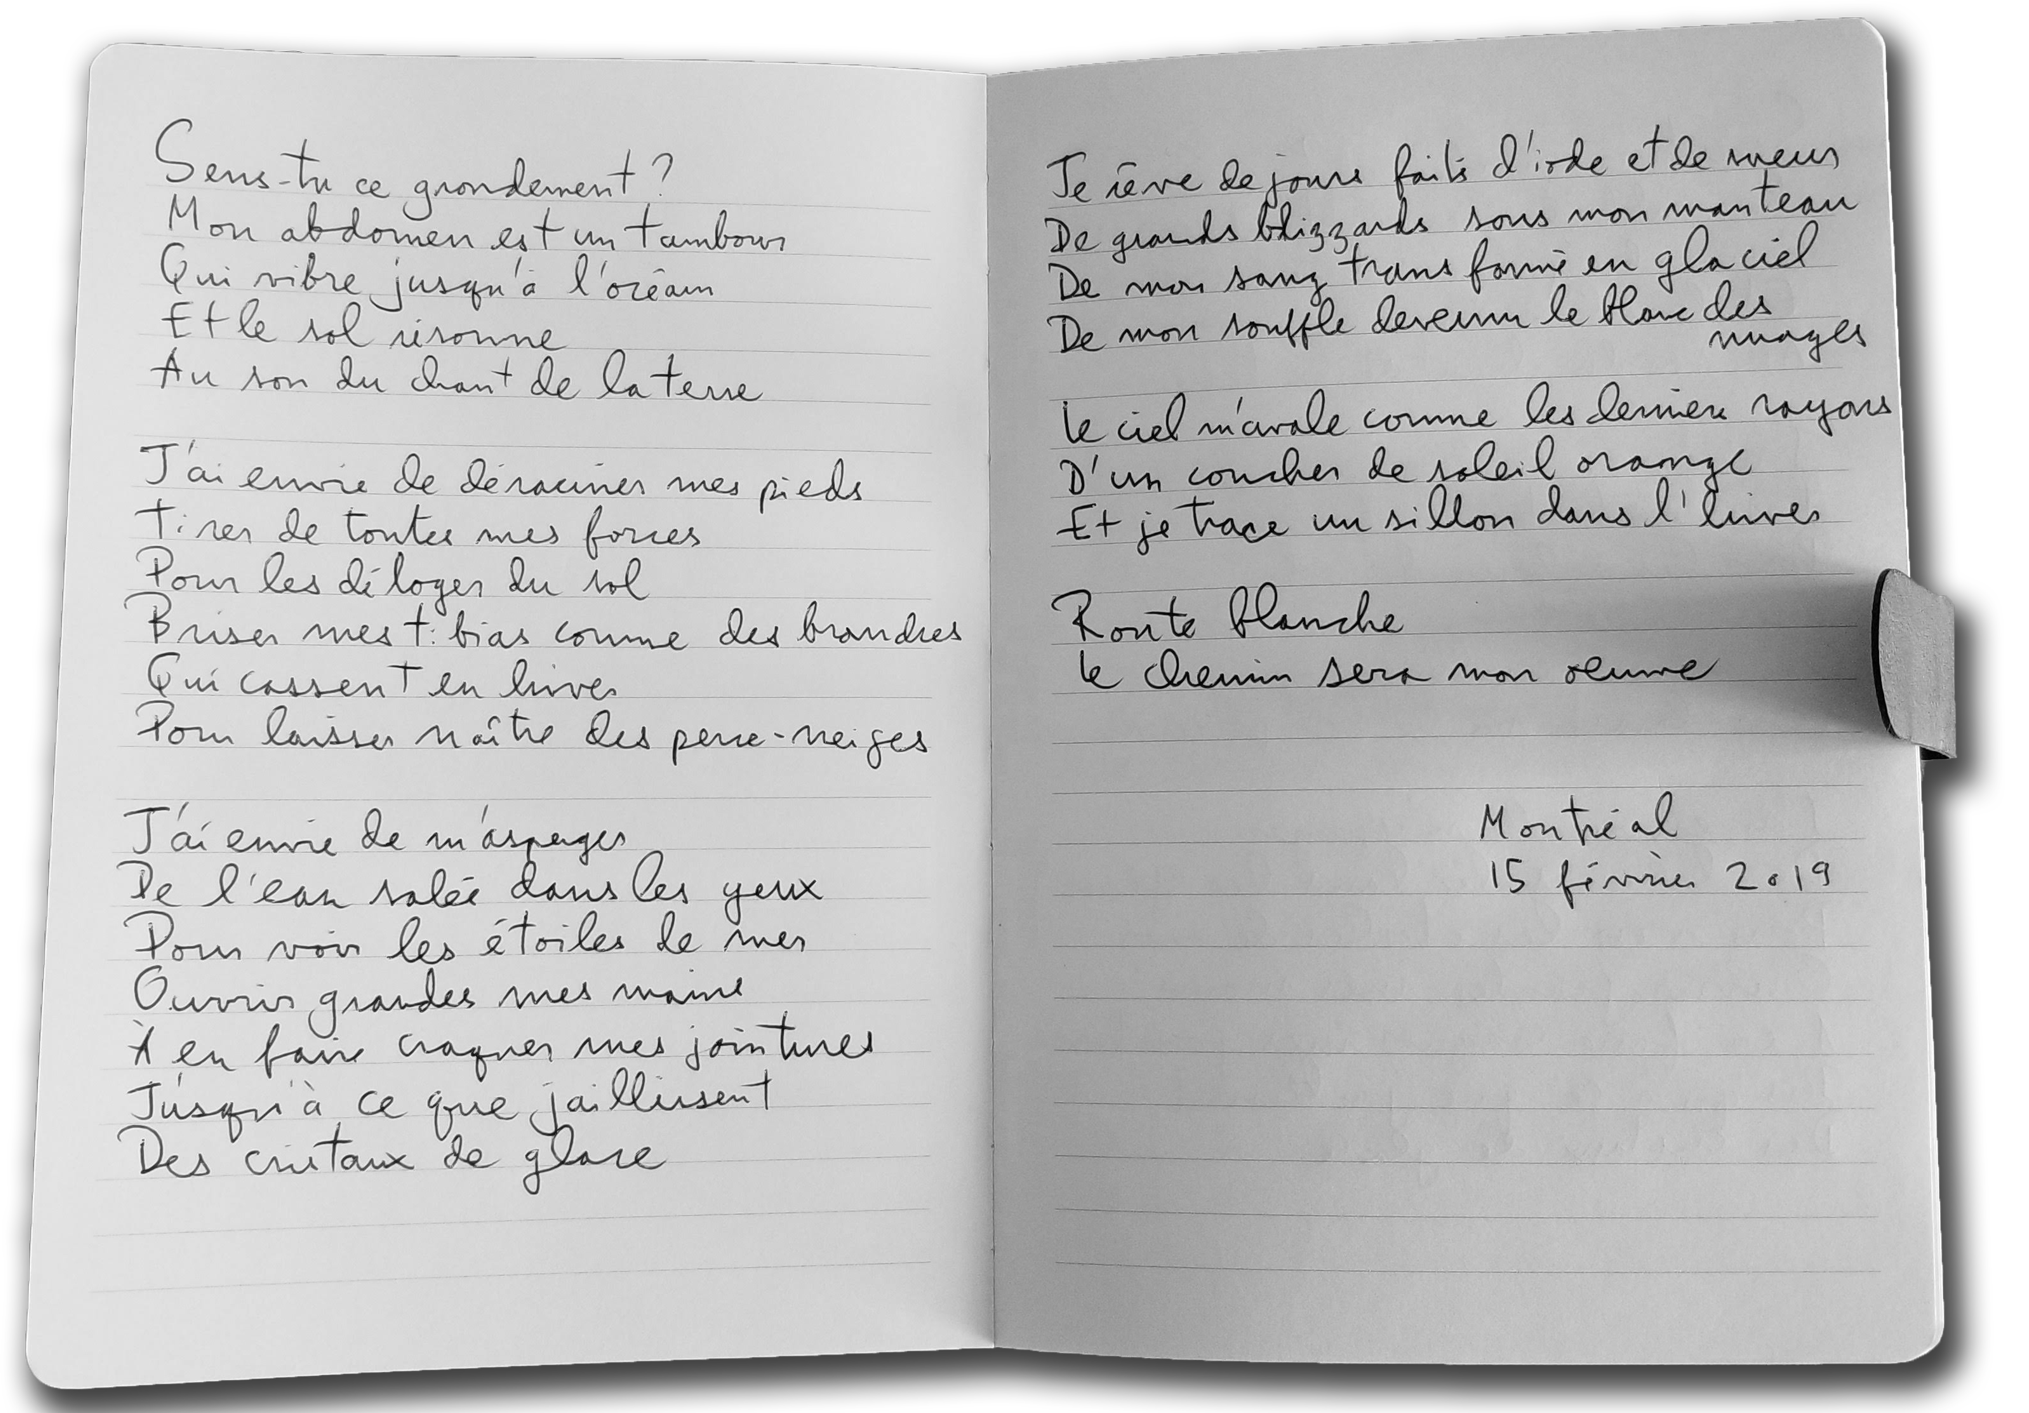 Sens-tu ce grondement ?
Mon abdomen est un tambour
Qui vibre jusqu'à l'océan
Et le sol résonne
Au son du chant de la terre
J'ai envie de déraciner mes pieds
Tirer de toutes mes forces
Pour les déloger du sol
Briser mes tibias comme des branches
Qui cassent en hiver
Pour laisser naître des perce-neiges
J'ai envie de m'asperger
De l'eau salée dans les yeux
Pour voir les étoiles de mer
Ouvrir grandes mes mains
À en faire craquer mes jointures
Jusqu'à ce que jaillissent
Des cristaux de glace
Je rêve de jours faits d'iode et de sueur
De grands blizzards sous mon manteau
De mon sang transformé en glaciel
De mon souffle devenu le blanc des
nuages
Le ciel m'avale comme les derniers rayons
D'un coucher de soleil orange
Et je trace un sillon dans l'hiver
Route blanche
Le chemin sera mon œuvre
Montréal
15 février 2019